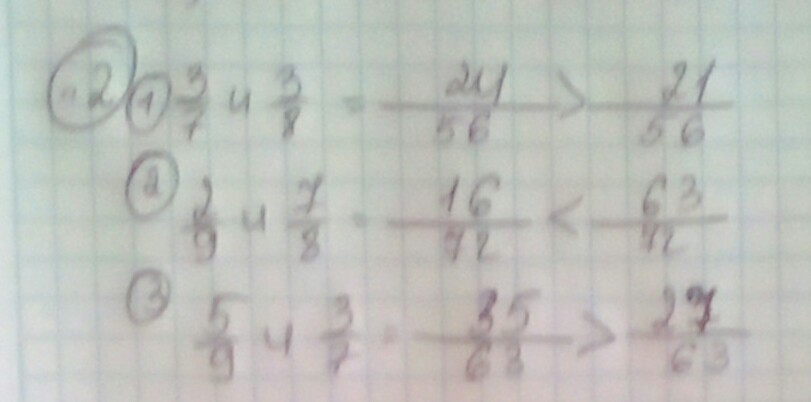 2 1 3/7 и 3/8 = 24/56 > 21/56
2 2/9 и 7/8 = 16/72 < 63/72
3 5/9 и 3/7 = 35/63 > 27/63